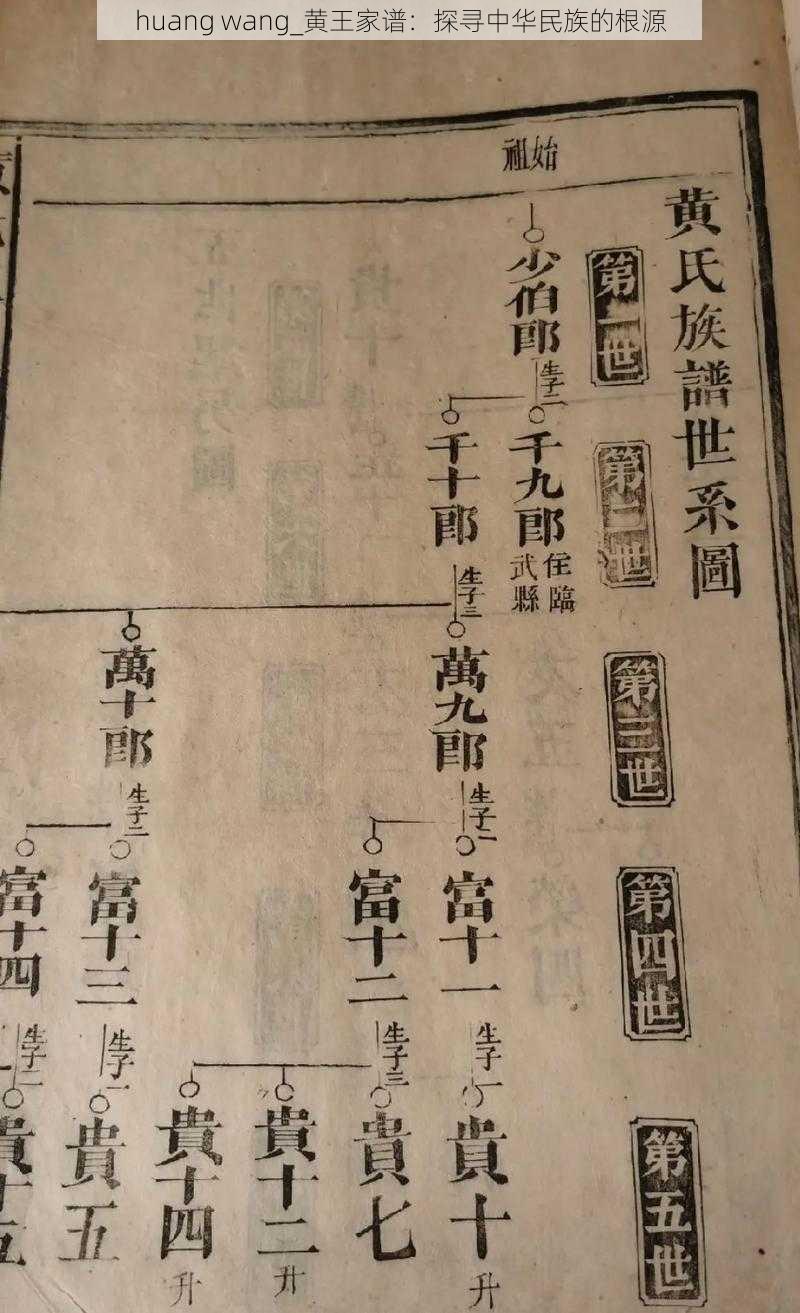 huang wang_黄王家谱：探寻中华民族的根源
黄氏族譜世系圖
始祖
第一世
少伯郎
生子二
第二世
千九郎
住臨武縣
千十郎
生子三
第三世
萬九郎
生子二
萬十郎
生子二
第四世
富十一
生子一
富十二
生子三
富十三
生子一
富十四
生子二
第五世
貴十
升
貴七
貴十二
升
貴十四
升
貴五
貴十五